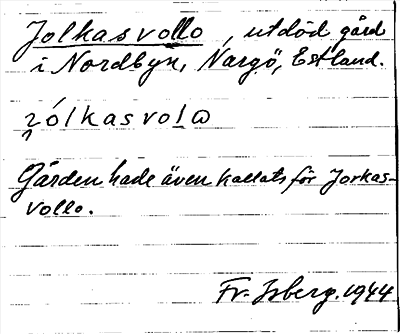 Jolkasvollo, utdöd gård
i Nordbyn, Nargö, Estland.
jólkasvolω
Gården hade även kallats för Jorkas-
vollo.
Fr. Isberg. 1944